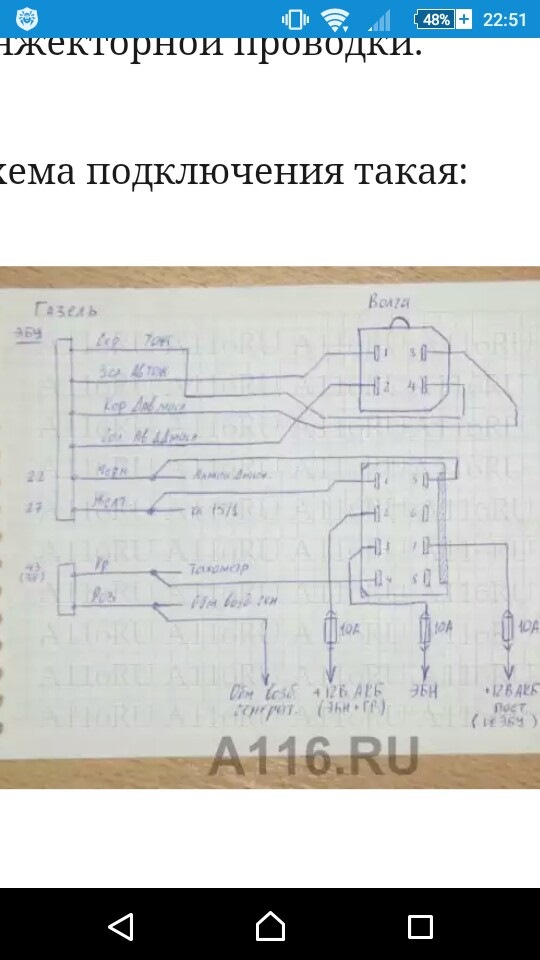 48%
22:51
нжекторной проводки.
хема подключения такая:
Газель
Волга
ЭБУ
Сер Топл
Зел Ав Топл
Кор Дав масл
Ав Д масл
22
Черн
27
Желт
кл 15/1
43
Кр
Тахометр
Роз
Обм. возб. ген
1
3
2
4
1
5
2
6
3
7
4
8
10А
10А
10А
Обм возб. генерат.
+12В АКБ
(ЭБН + ГР)
ЭБН
+12В АКБ
пост.
A116.RU